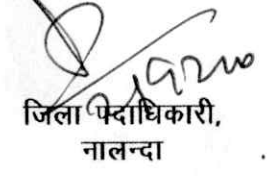 जिला पदाधिकारी,
नालन्दा